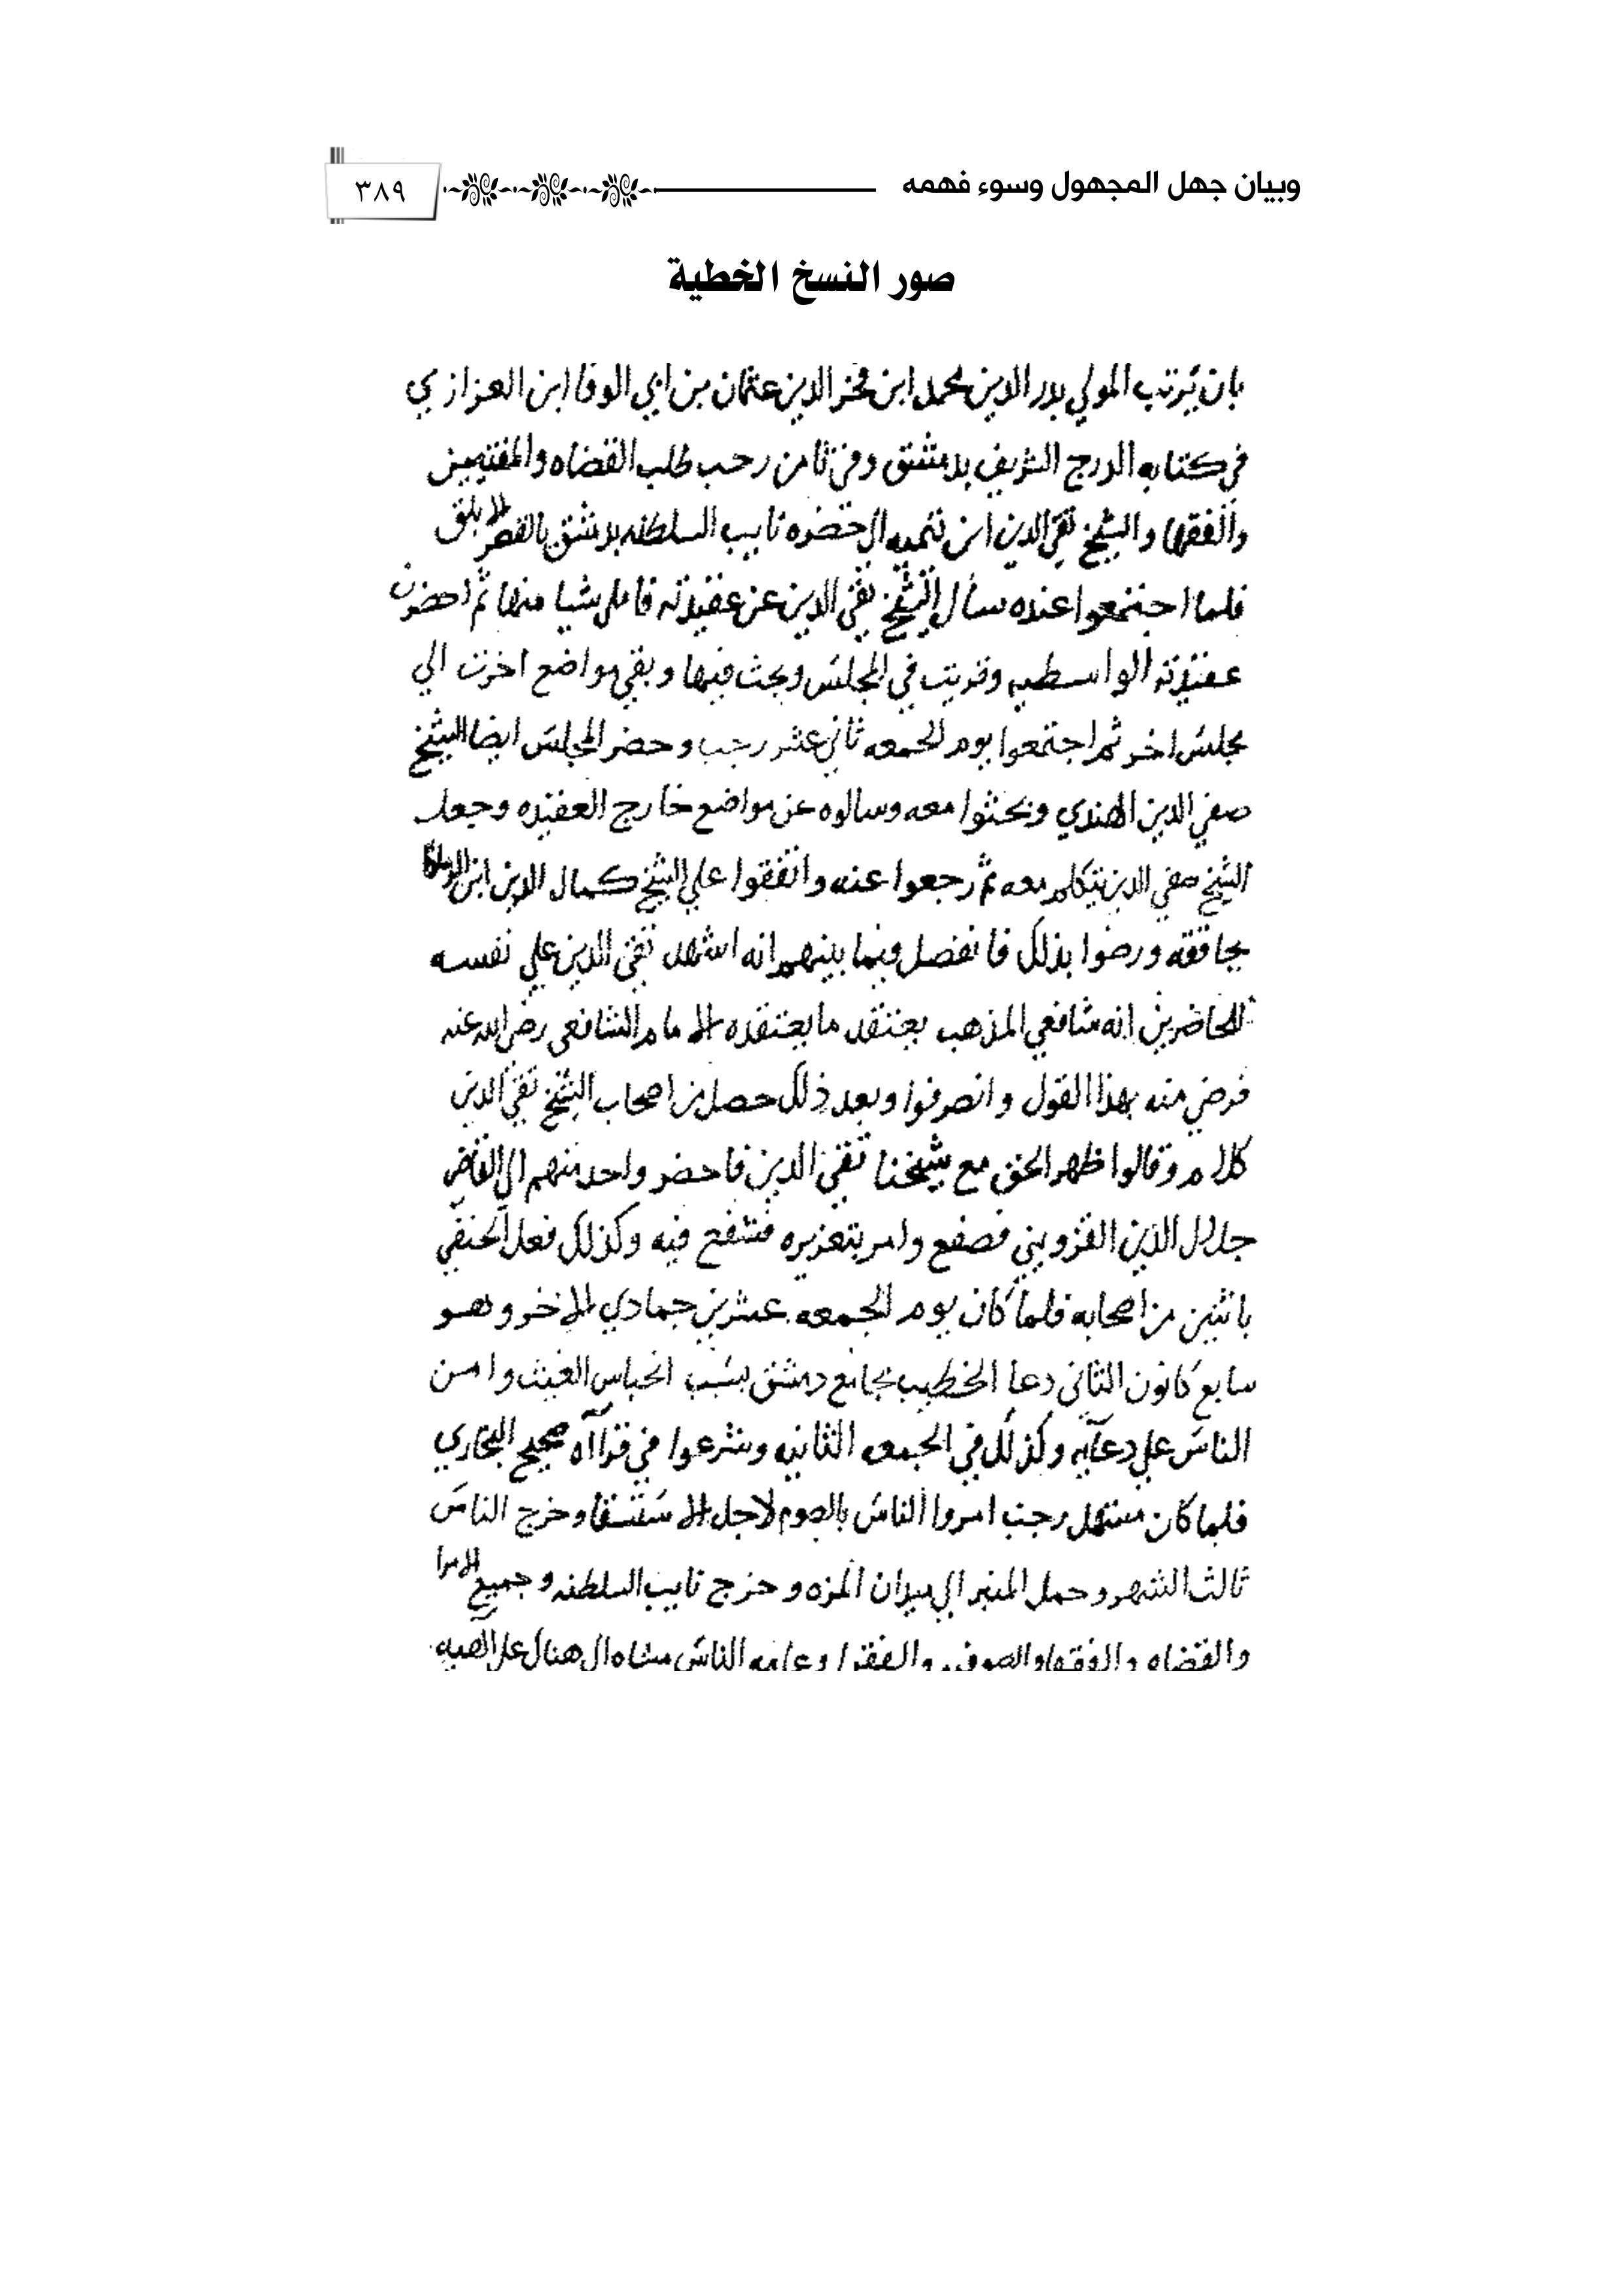 وبيان جهل المجهول وسوء فهمه
٣٨٩
صور النسخ الخطية
بان يرتب المولي بدر الدين محمد ابن فخر الدين عثمان بن ابي الوفا ابن العزازي
في كتابه الدرج الشريف بدمشق وفي ثامن رجب طلب القضاه والمفتيين
والفقها والشيخ تقي الدين ابن تيميه الي حضره نايب السلطنه بدمشق بالقصر الابلق
فلما اجتمعوا عنده سأل الشيخ تقي الدين عن عقيدته فاملي شيا منها ثم احضرت
عقيدته الواسطيه وقريت في المجلس وبحث فيها وبقي مواضع اخرت الي
مجلس اخر ثم اجتمعوا يوم الجمعه ثاني عشر رجب وحضر المجلس ايضا الشيخ
صفي الدين الهندي وبحثوا معه وسالوه عن مواضع خارج العقيده وجعل
الشيخ صفي الدين يتكلم معه ثم رجعوا عنه واتفقوا علي الشيخ كمال الدين ابن
يحاققه ورضوا بذلك فانفصل فيما بينهم انه اشهد تقي الدين علي نفسه
الحاضرين انه شافعي المذهب يعتقد ما يعتقده الامام الشافعي رضي الله عنه
فرضي منه بهذا القول وانصرفوا وبعد ذلك حصل من اصحاب الشيخ تقي الدين
كلام وقالوا ظهر الحق مع شيخنا تقي الدين فاحضر واحد منهم الي القاضي
جلال الدين القزويني فصفع وامر بتعزيره فشفع فيه وكذلك فعل الحنفي
باثنين من اصحابه فلما كان يوم الجمعه عشرين جمادي الاخر وهو
سابع كانون الثاني دعا الخطيب بجامع دمشق بسبب انحباس الغيث وامن
الناس علي دعآيه وكذلك في الجمعه الثانيه وشرعوا في قرآاه صحيح البخاري
فلما كان مستهل رجب امروا الناس بالصوم لاجل الاستسقا وخرج الناس
ثالث الشهر وحمل المنبر الي ميدان المزه وخرج نايب السلطنه وجميع الامرا
والقضاه والفقها والصوفيه والفقرا وعامه الناس مشاه الي هناك علي الهيه